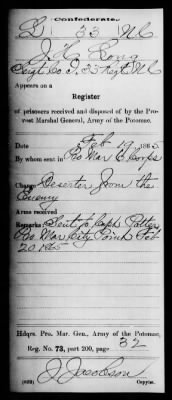 Confederate.
L 33 N C
J. H. Long
Sergt Co I, 33 Regt N C
Appears on a
Register
of prisoners received and disposed of by the Pro-
vost Marshal General, Army of the Potomac.
Date Feb 19, 1865
By whom sent in Pro Mar 6 Corps
Charge Deserter from the
Enemy
Arms received
Remarks Sent to Capt Potter
Pro Mar City Point Feb
20 1865
Hdqrs. Pro. Mar. Gen., Army of the Potomac,
Reg. No. 73, part 200, page 32
J. Jacobson
Copyist.